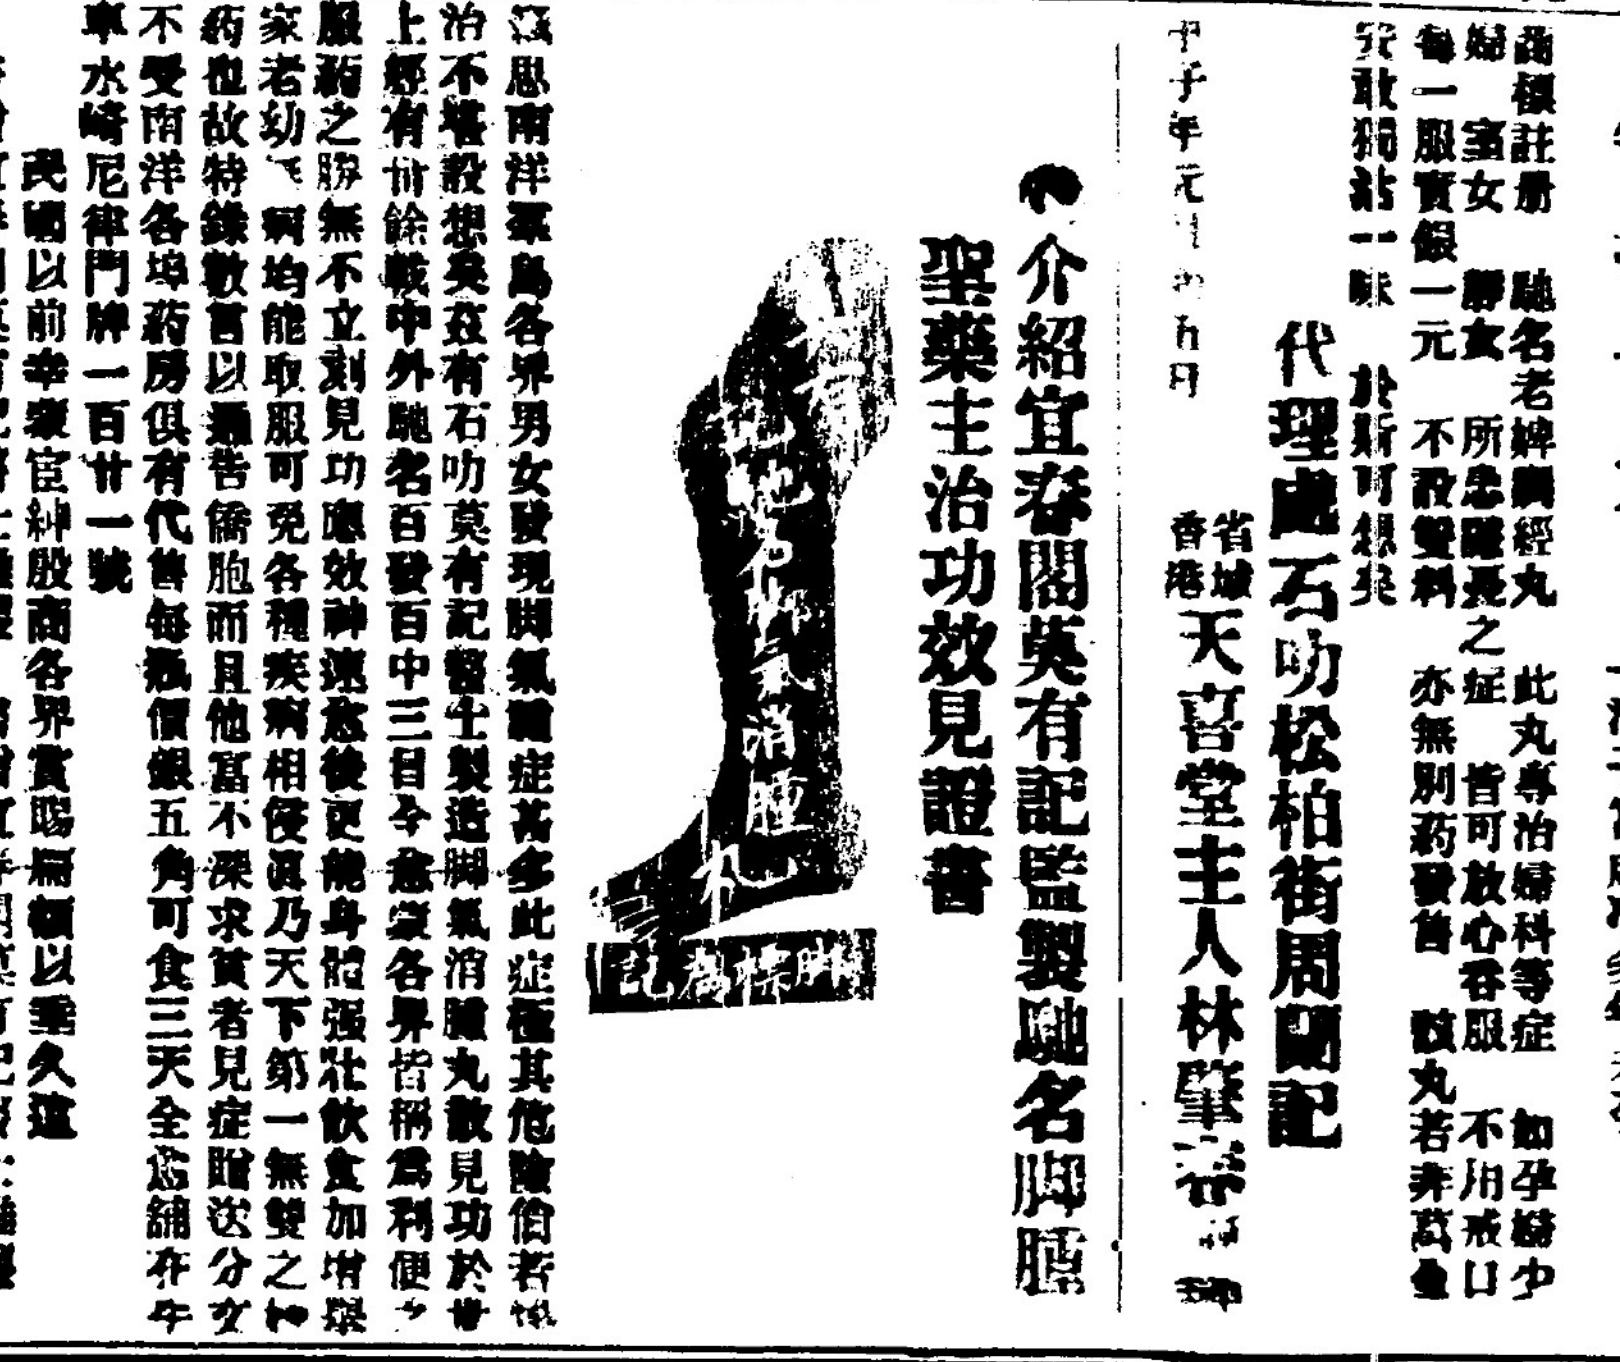 商標註册 馳名老婢調經丸 此丸專治婦科等症 如孕婦少
婦 室女 所患 之症 皆可放心吞服 不用戒口
每一服實銀一元 不設雙料 亦無別葯發售 該丸若非萬
安敢獨沽一味 於斯可想矣
代理處石叻松柏街周蘭記
省城
香港
天喜堂主人林肇
甲子年元月 五日
介紹宜春閣莫有記監製馳名脚腫
聖藥主治功效見證書
消腫
丸
記為標脚
思南洋羣島各界男女發現脚氣腫症甚多此症極其危險伯若
治不堪設想矣茲有石叻莫有記醫士製造脚氣消腫丸散見功於世
上經有卅餘載中外馳名百發百中三日令愈蒙各界皆稱為利便
服葯之勝無不立刻見功應效神速愈後更能身體强壯飲食加增
家老幼 病均能取服可免各種疾病相侵眞乃天下第一無雙之
葯也故特錄數言以通告僑胞而且他富不深求貧者見症贈送分文
不受南洋各埠葯房俱有代售每瓶價銀五角可食三天全愈舖在牛
車水崎尼律門牌一百廿一號
民國以前幸蒙官紳殷商各界賞賜扁額以垂久遠